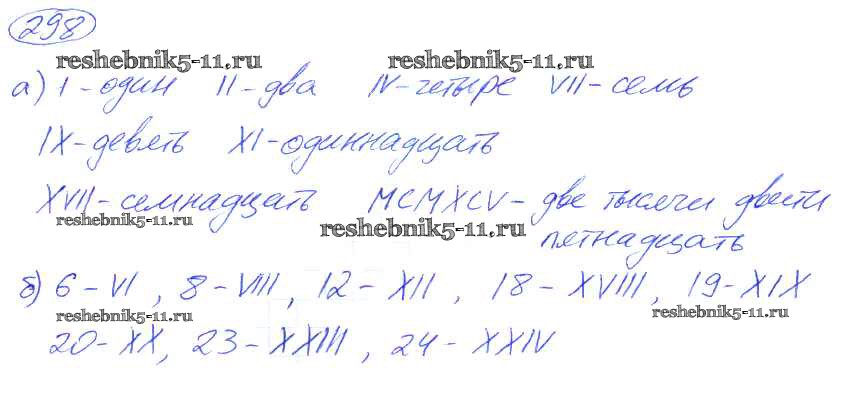 298
reshebnik5-11.ru reshebnik5-11.ru
а) I - один II - два IV - четыре VII - семь
IX - девять XI - одиннадцать
XVII - семнадцать MCMXCV - две тысячи двести
reshebnik5-11.ru reshebnik5-11.ru
пятнадцать
б) 6 - VI , 8 - VIII , 12 - XII , 18 - XVIII , 19 - XIX
reshebnik5-11.ru reshebnik5-11.ru
20 - XX, 23 - XXIII , 24 - XXIV